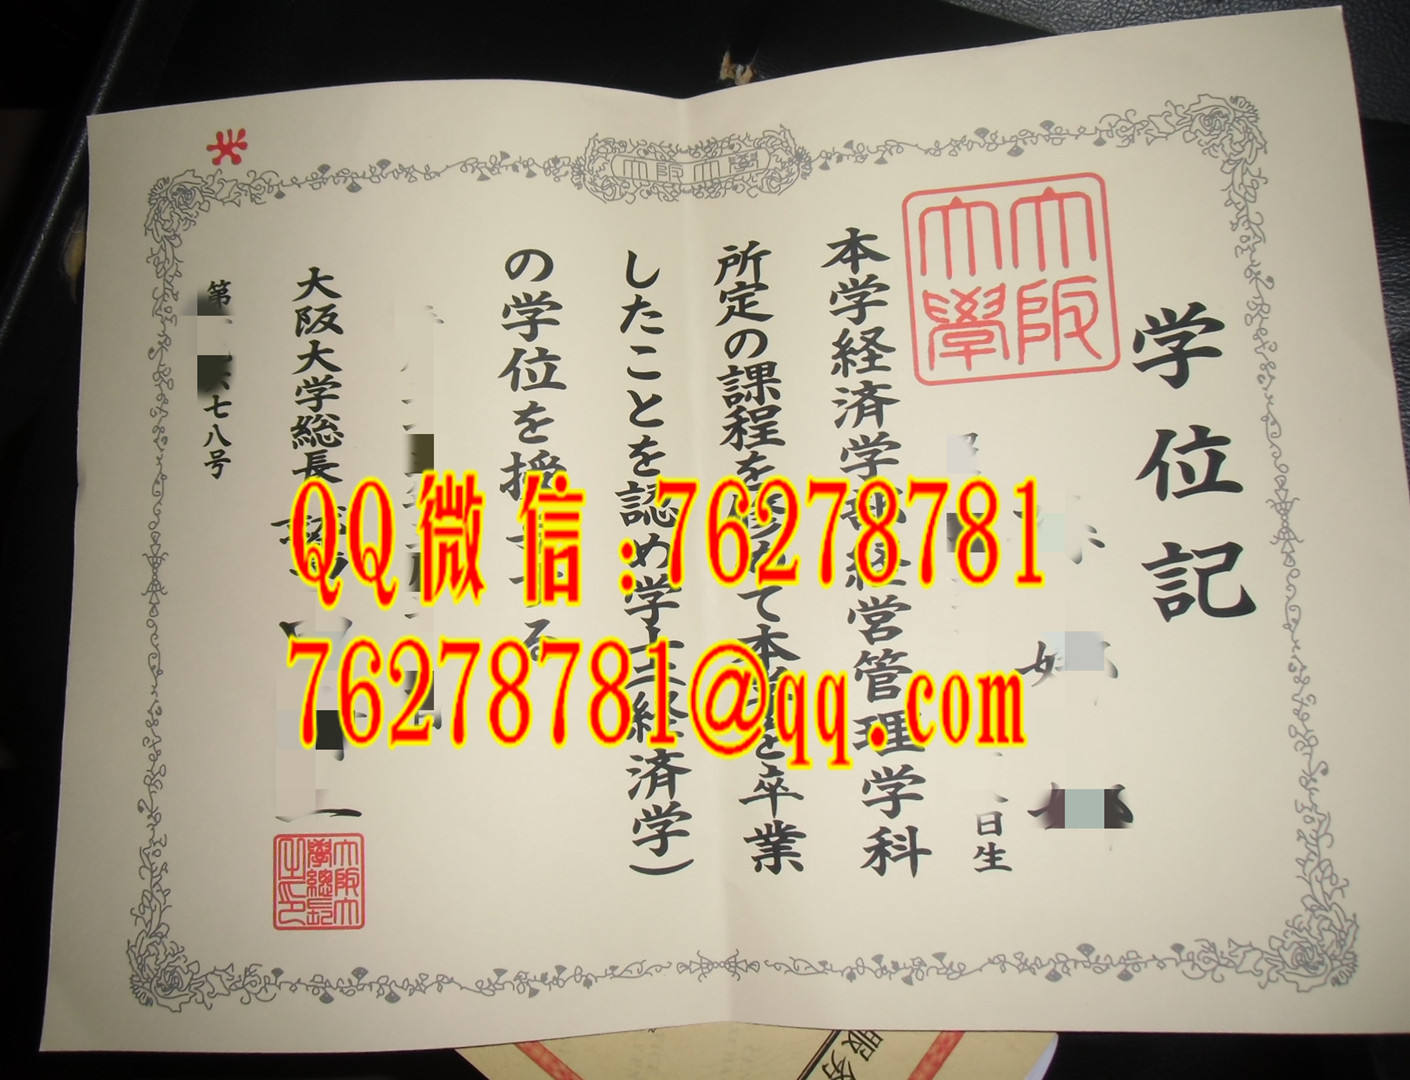 大阪大學
学位記
大阪大學
日生
本学経済学部経営管理学科
所定の課程を修めて本学を卒業
したことを認め学士(経済学)
の学位を授与する
大阪大学総長
大阪大學總長之印
第
七八号
QQ微信:76278781
76278781@qq.com